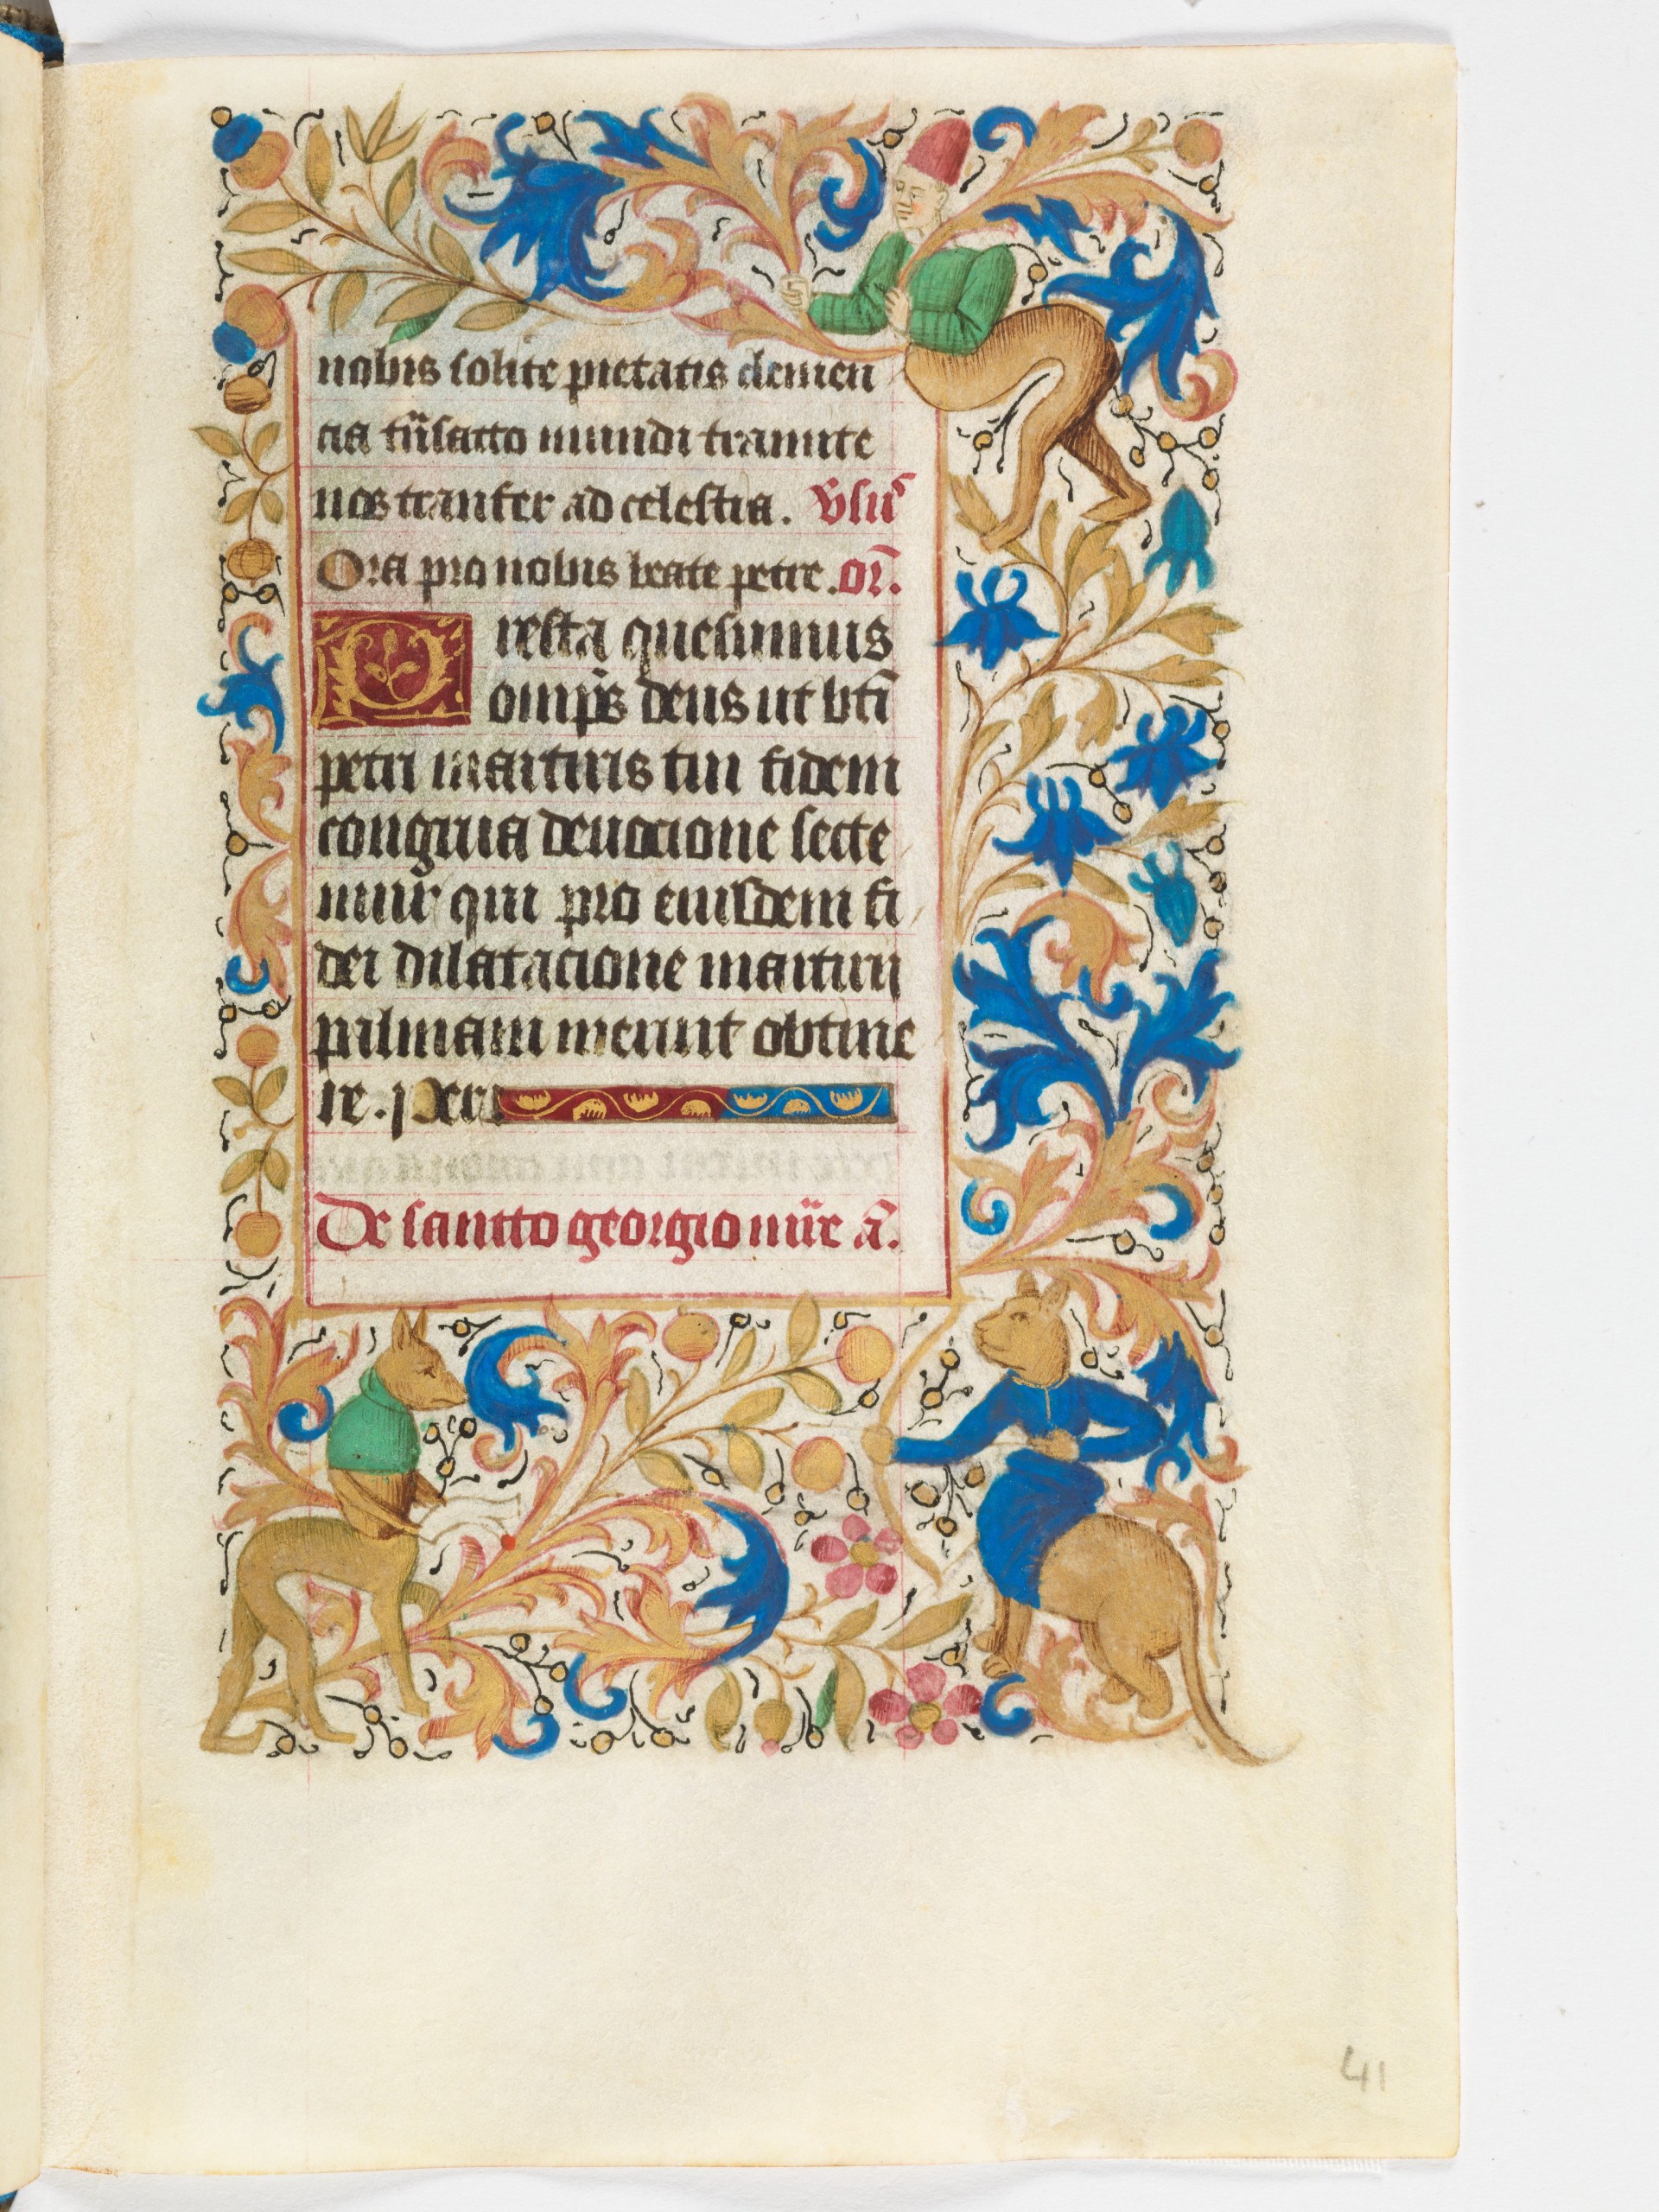 nobis solite pietatis clemen
cia tñsacto mundi tramite
nos tranfer ad celestia. Vsus
Ora pro nobis beate petre. or̃.
Presta quesumus
omp̃s deus ut bti̅
petri martiris tui fidem
congrua deuocione secte
mur qui pro eiusdem fi
dei dilatacione martirij
palmam meruit obtine
re. p xr̃
De sancto georgio mr̃e a̅.
41